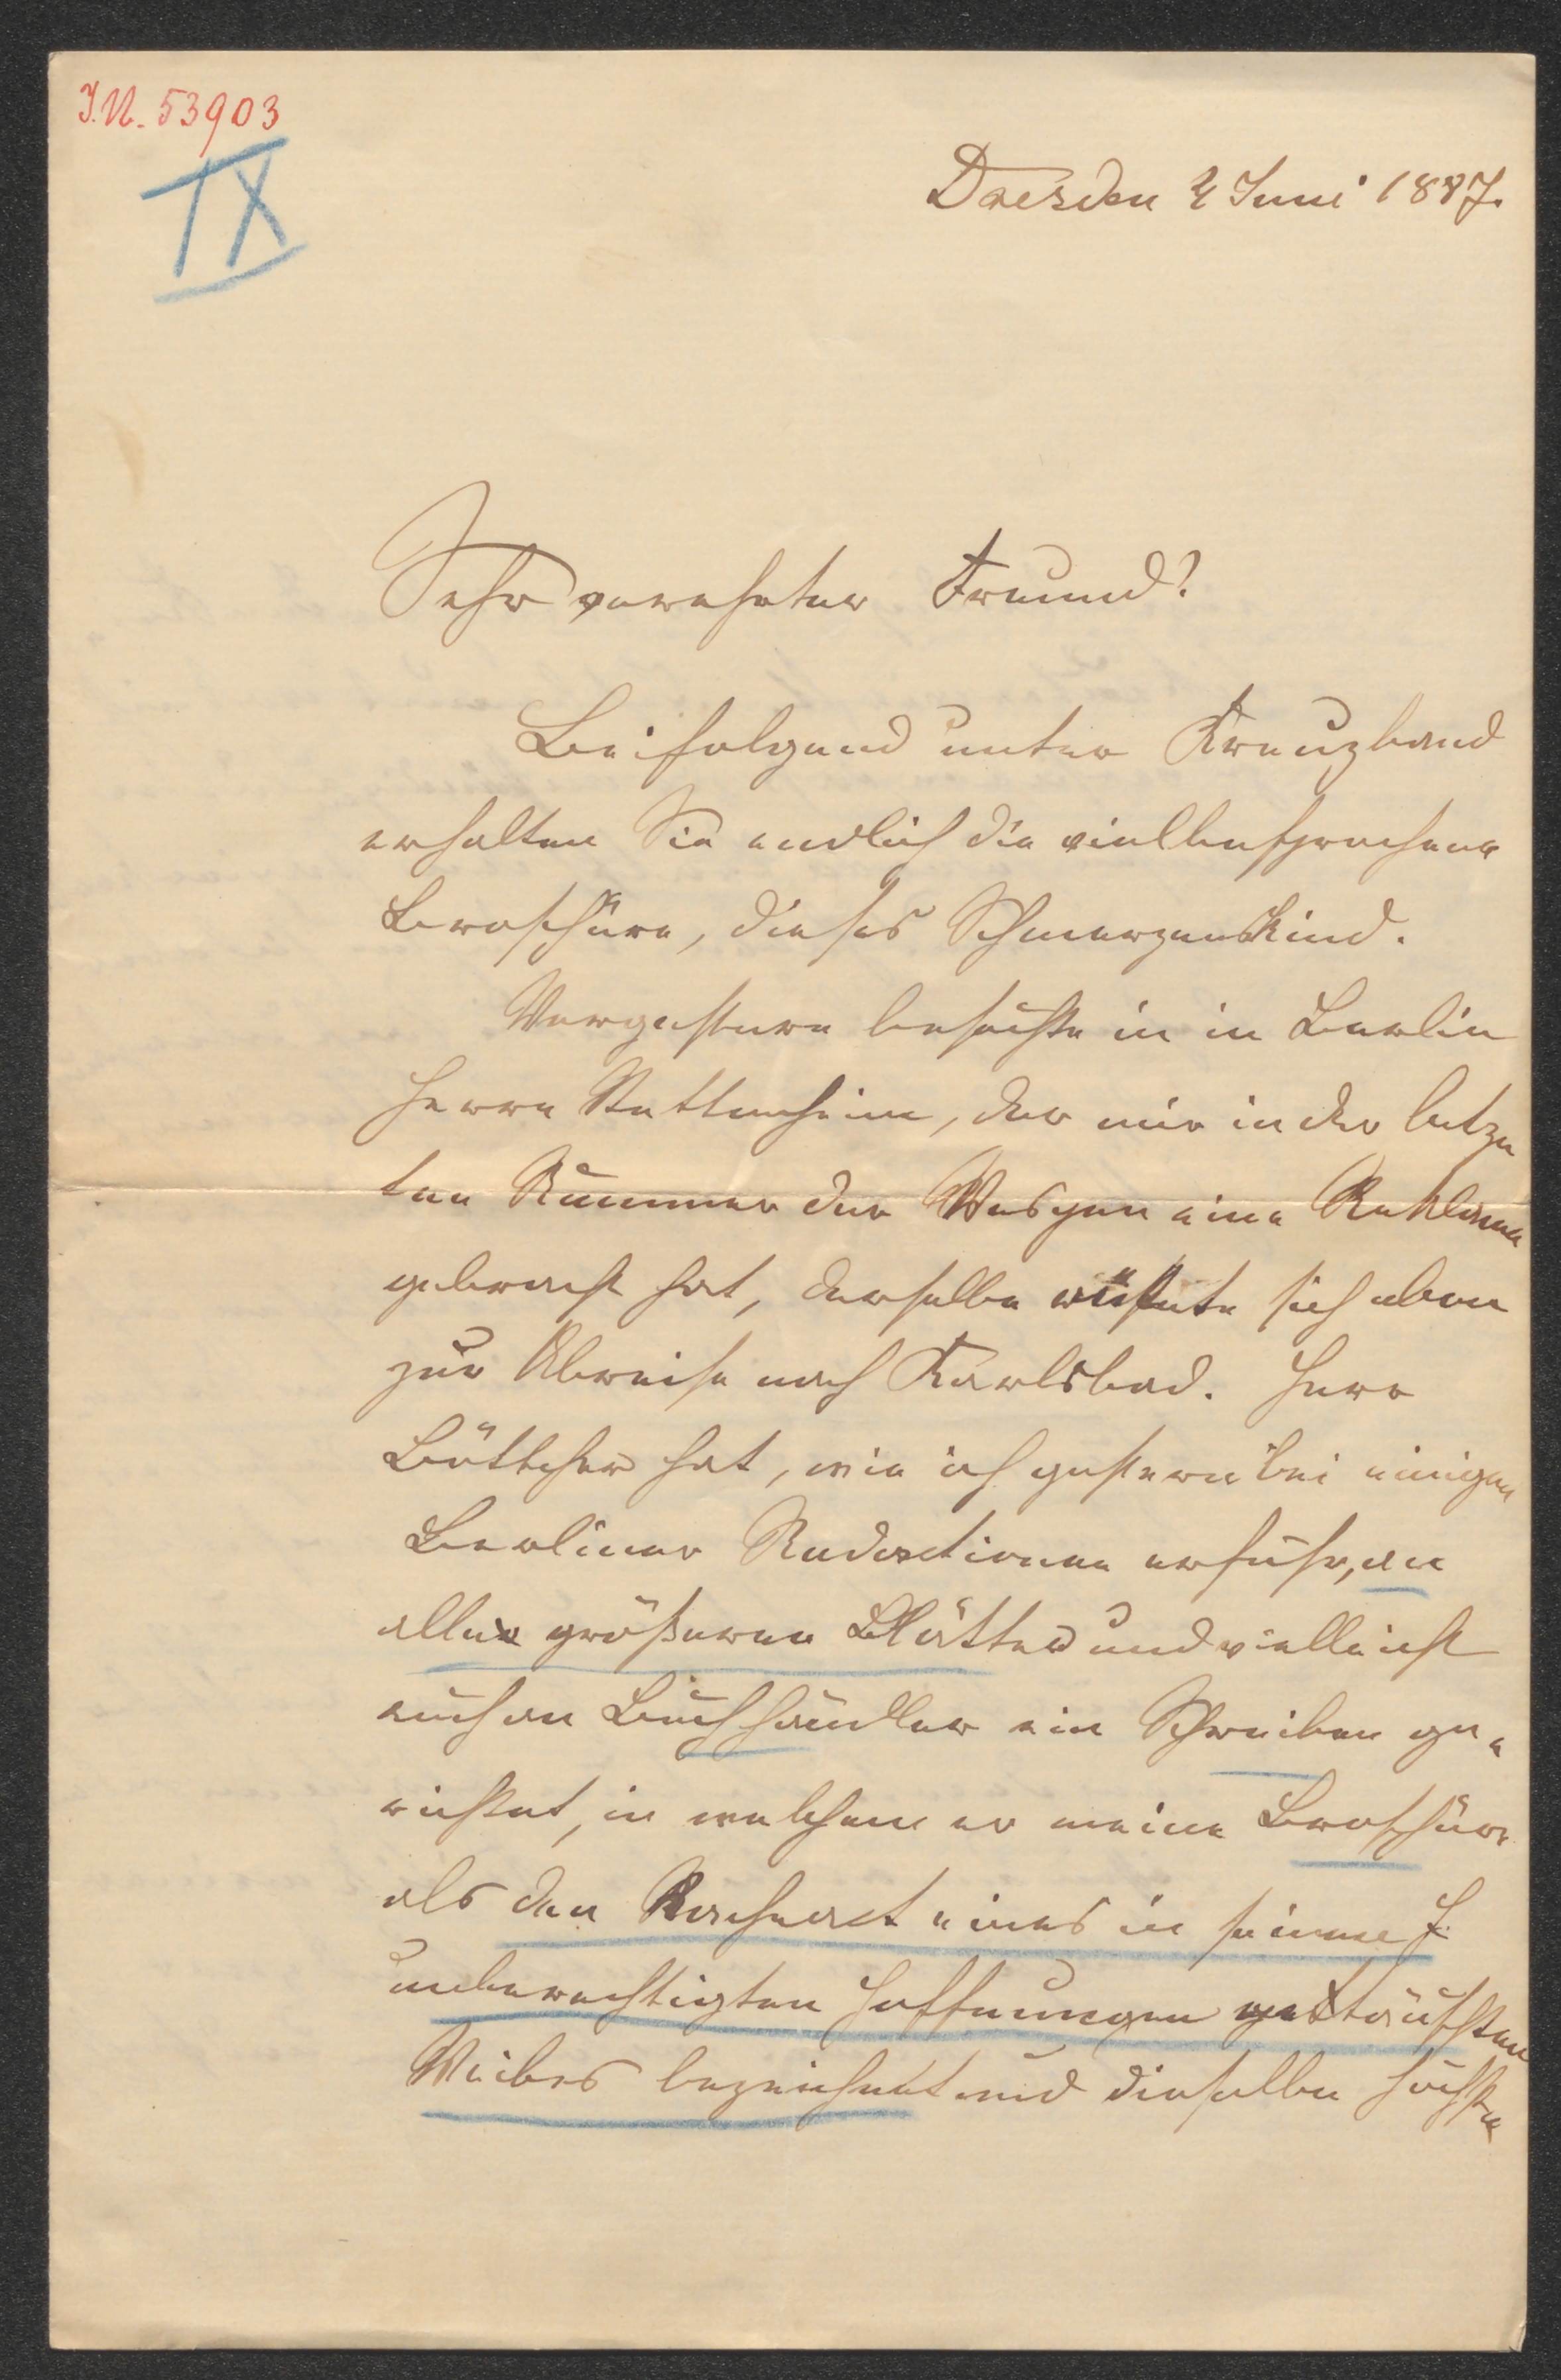 I.N. 53903
IX
Dresden 2 Juni 1887.
Sehr verehrter Freund!
Beifolgend unter Kreuzband
erhalten Sie endlich die vielbesprochene
Broschüre, dieses Schmerzenskind.
Vorgestern besuchte ich in Berlin
Herrn Stettenheim, der mir in der letz
ten Nummer der Wespen eine Reklame
gebracht hat, derselbe rüstete sich eben
zur Abreise nach Karlsbad. Herr
Böttcher hat, wie ich gestern bei einigen
Berliner Redactionen erfuhr, an
alle größeren Blätter und vielleicht
auch an Buchhändler ein Schreiben ge-
richtet, in welchem er meine Broschüre
als den Racheact eines in seinen
unberechtigten Hoffnungen getäuschten
Weibes bezeichnet und dieselbe höchste